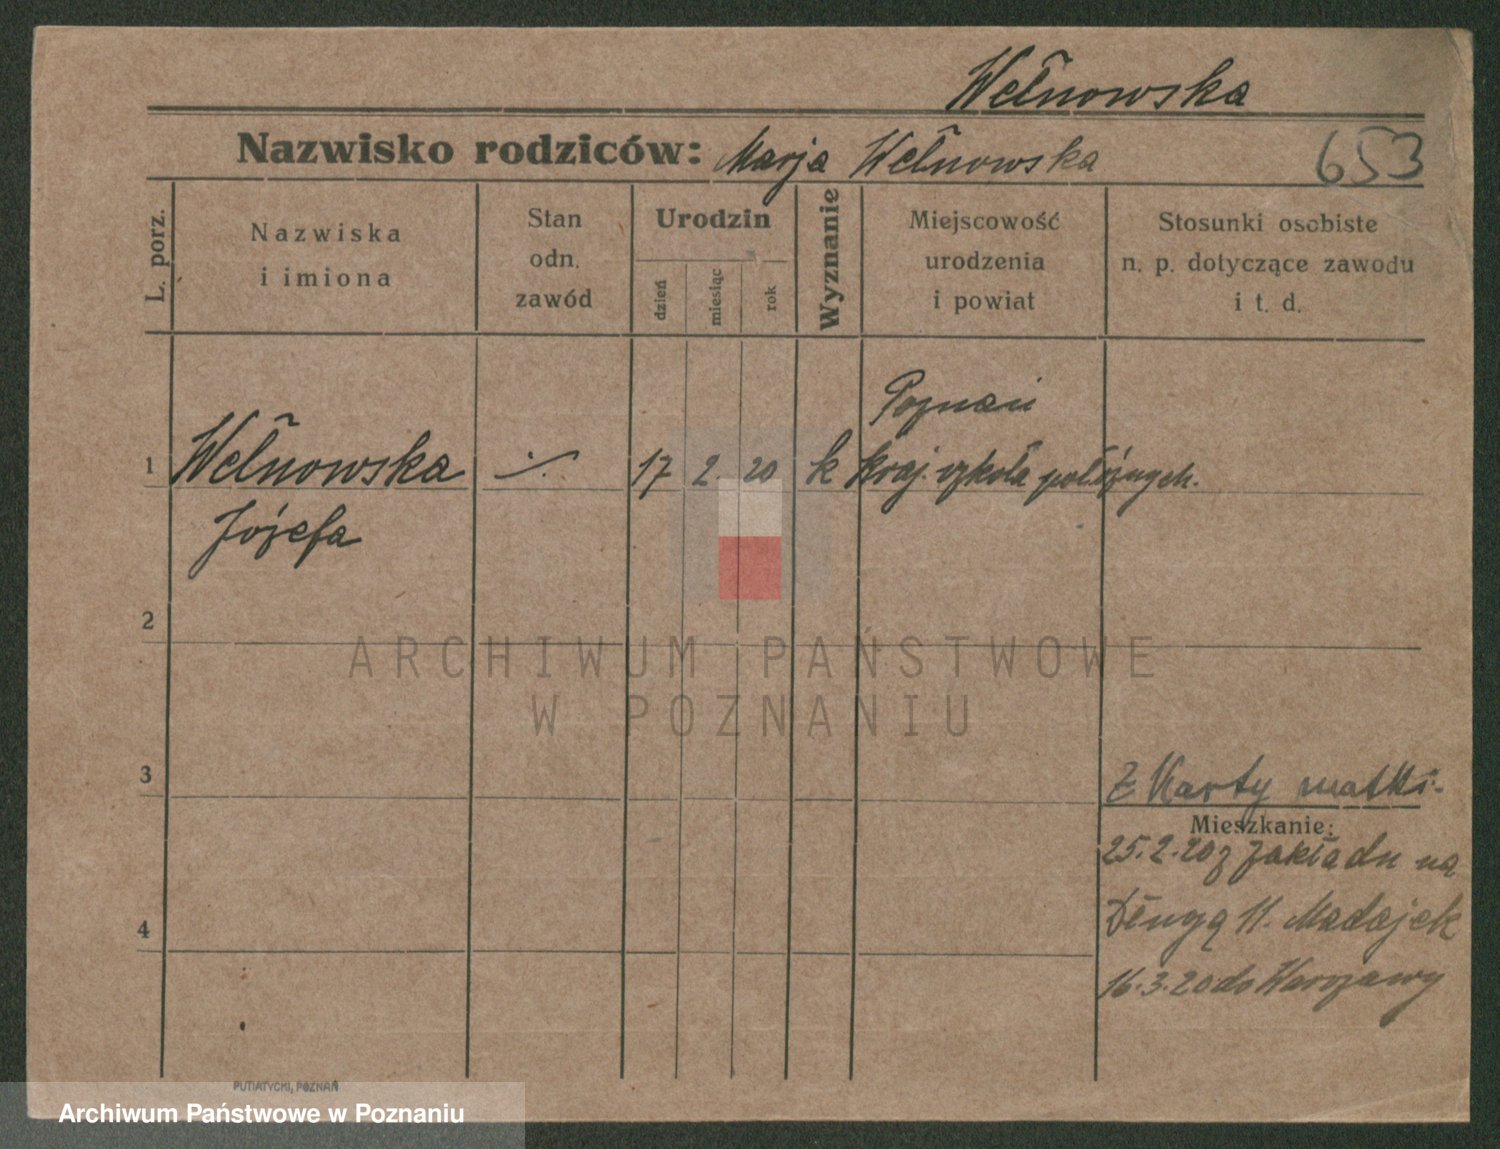 Wełnowska
Nazwisko rodziców: Marja Wełnowska
653
L. porz.
Nazwiska
i imiona
Stan
odn.
zawód
Urodzin
dzień
miesiąc
rok
Wyznanie
Miejscowość
urodzenia
i powiat
Stosunki osobiste
n. p. dotyczące zawodu
i t. d.
Poznań
1 Wełnowska ·/· 17 2 20 k kraj. szkoła położnych.
Józefa
2
ARCHIWUM PAŃSTWOWE
W POZNANIU
3
Z Karty matki.
Mieszkanie:
25.2.20 z zakładu na
Długą 11. Madajek
4
16.3.20 do Warszawy
PUTIATYCKI, POZNAŃ
Archiwum Państwowe w Poznaniu